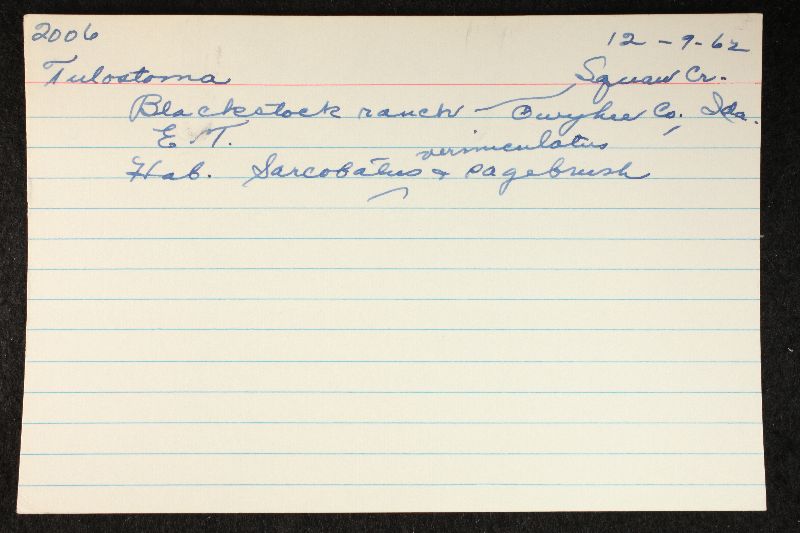 2006 12-9-62
Tulostoma Squaw Cr.
Blackstock ranch — Owyhee Co., Ida.
E. T. vermiculatus
Hab. Sarcobatus & sagebrush